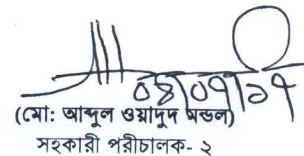 ০৪/০৭/১৭
(মো: আব্দুল ওয়াদুদ মন্ডল)
সহকারী পরীচালক- ২